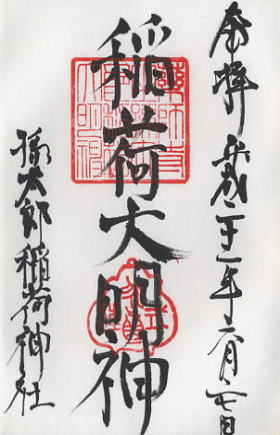 奉拝 平成二十一年六月七日
稲荷大明神
孫太郎稲荷神社